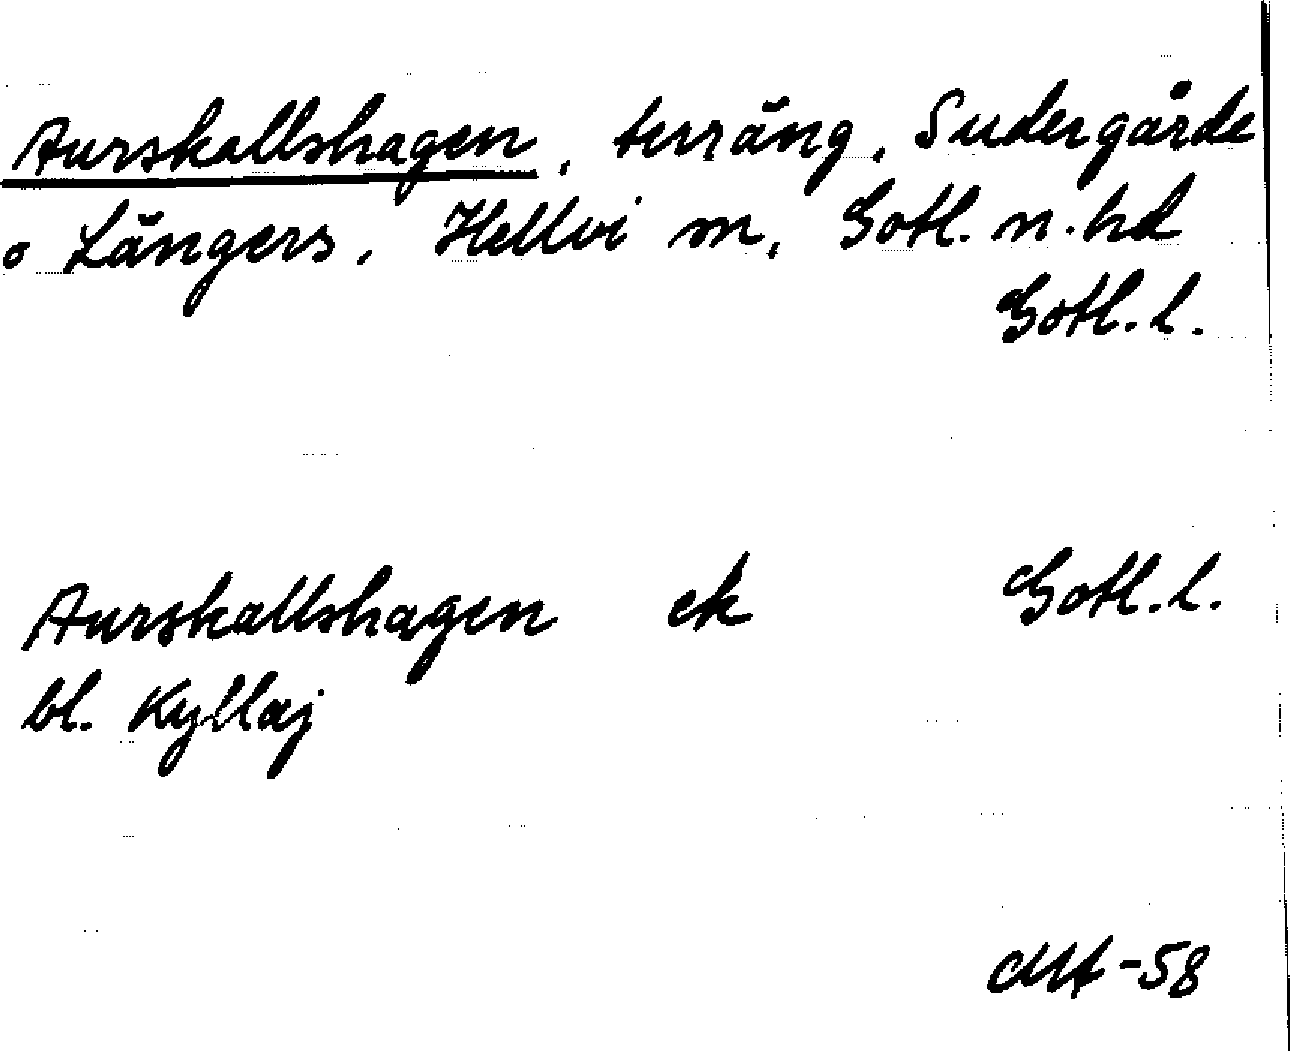 Aurskallshagen, terräng, Sudergårde
o Längers, Hellvi sn, Gotl. n. hd
Gotl. l.
Aurskallshagen ek Gotl. l.
bl. Kyllaj
-58